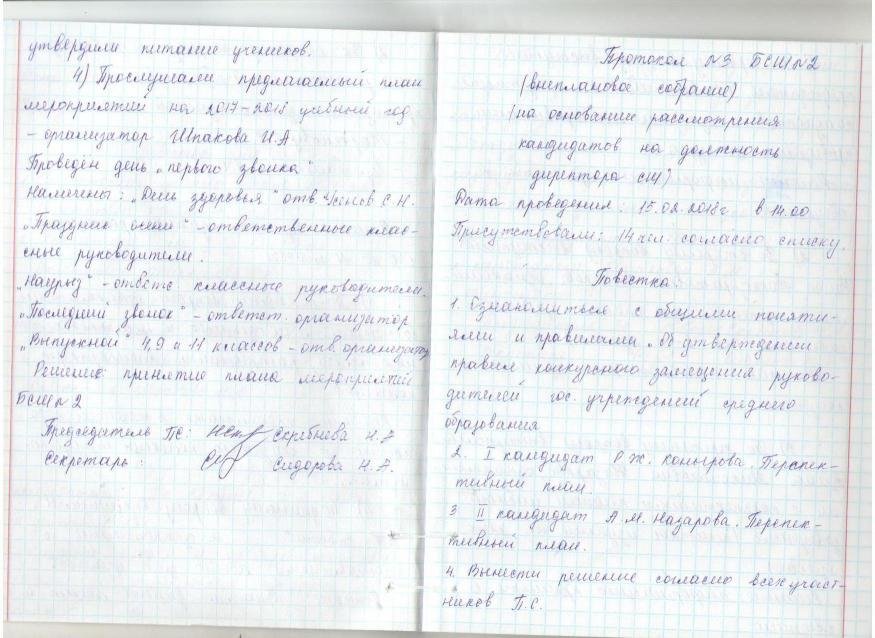 утвердили питание учеников.
4) Прослушали предлагаемый план
мероприятий на 2017-2018 учебный год
- организатор Шпакова И.А
Проведён день „первого звонка"
Намечены: „День здоровья" отв. С.Н.
„Праздник осени" - ответственные клас-
сные руководители.
„Наурыз" - ответс классные руководители.
„Последний звонок" - ответст. организатор
„Выпускной" 4,9 и 11 классов - отв. организатор
Решение: принятие плана мероприятий
БСШ №2
Председатель ПС: Скребнева Н.А
Секретарь: Сидорова Н.А.
Протокол №3 БСШ №2
(внеплановое собрание)
(на основание рассмотрения
кандидатов на должность
директора СШ)
Дата проведения: 15.02.2018г в 14.00
Присутствовали: 14 чел. согласно списку.
Повестка
1. Ознакомиться с общими поняти-
ями и правилами „Об утверждении
правил конкурсного замещения руково-
дителей гос. учреждений среднего
образования
2. I кандидат Р.Ж. Конырова. Перспек-
тивный план.
3 II кандидат А.М. Назарова. Перспек-
тивный план.
4. Вынести решение согласно всех участ-
ников П.С.